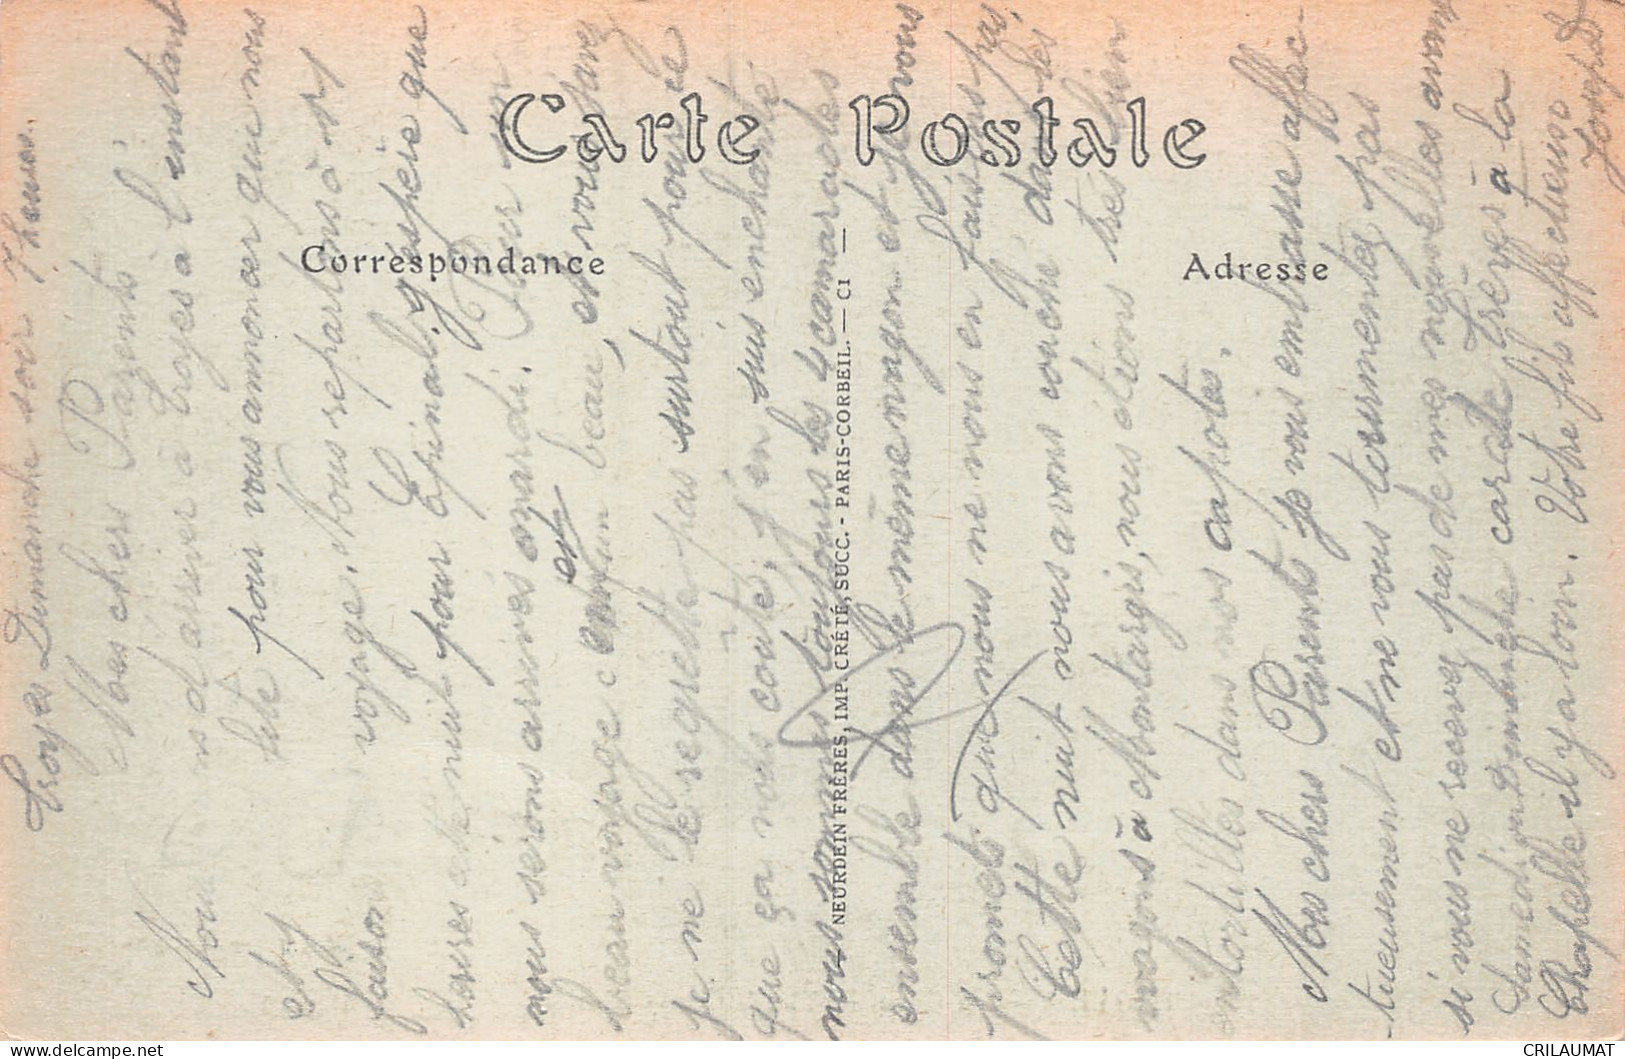 Carte Postale
Correspondance
Adresse
NEURDEIN FRÈRES, IMP. CRÉTÉ, SUCC. - PARIS-CORBEIL. — CI —
Troyes Dimanche soir 7 heures.
Mes chers Parents
Nous d'arriver à Troyes à l'instant
et pour vous annoncer que nous
faison voyage. Nous repartons à
heures cette nuit pour Epinal. J'espère que
nous sérons arrivés mardi. Pour un
beau voyage c'est un beau, et vous savez
je ne le regrette pas surtout pour ce
que ça nous coute, j'en suis enchanté.
nous sommes toujours les 4 camarades
ensemble dans le même wagon et je vous
promets que nous ne nous en faisons pas.
Cette nuit nous avons couché dans les
wagons à Montargis, nous étions très bien
entortillés dans nos capotes.
Mes chers Parents je vous embrasse affec-
-tueusement et ne vous tourmentez pas
si vous ne recevez pas de mes nouvelles avant
Samedi ou Dimanche car de Trèves à la
Chapelle il y a loin. Votre fils affectueux
Joseph
CRILAUMAT